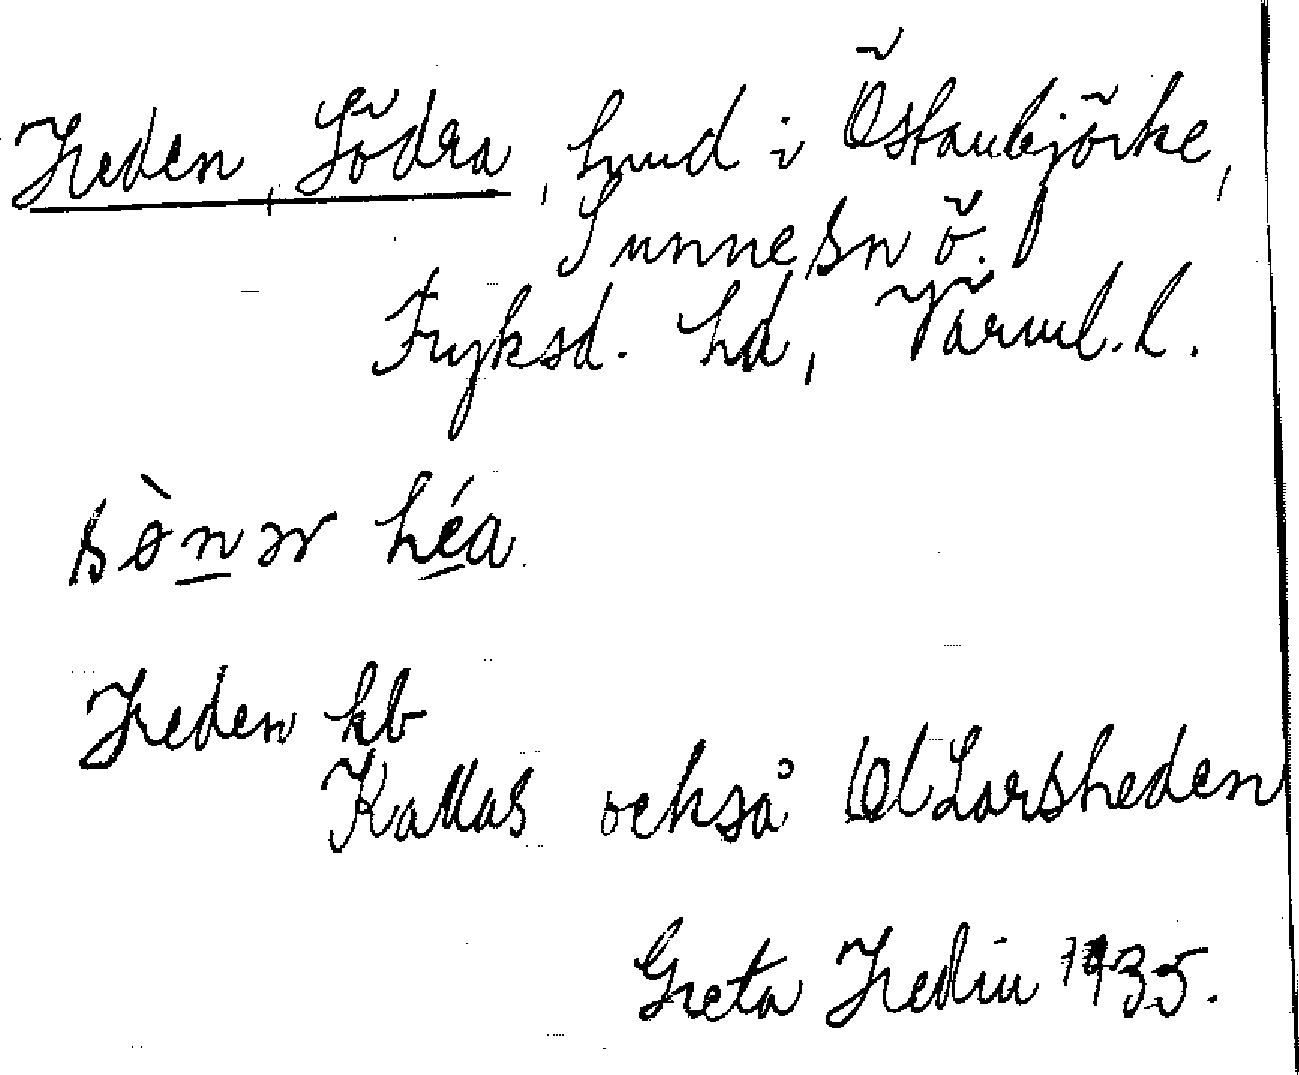 Heden, Södra, hmd i Östanbjörke,
Sunne sn ö.
Fryksd. hd, Värml. l.
sònər héa
Heden kb
Kallas också Ol Larsheden
Greta Hedin 1935.